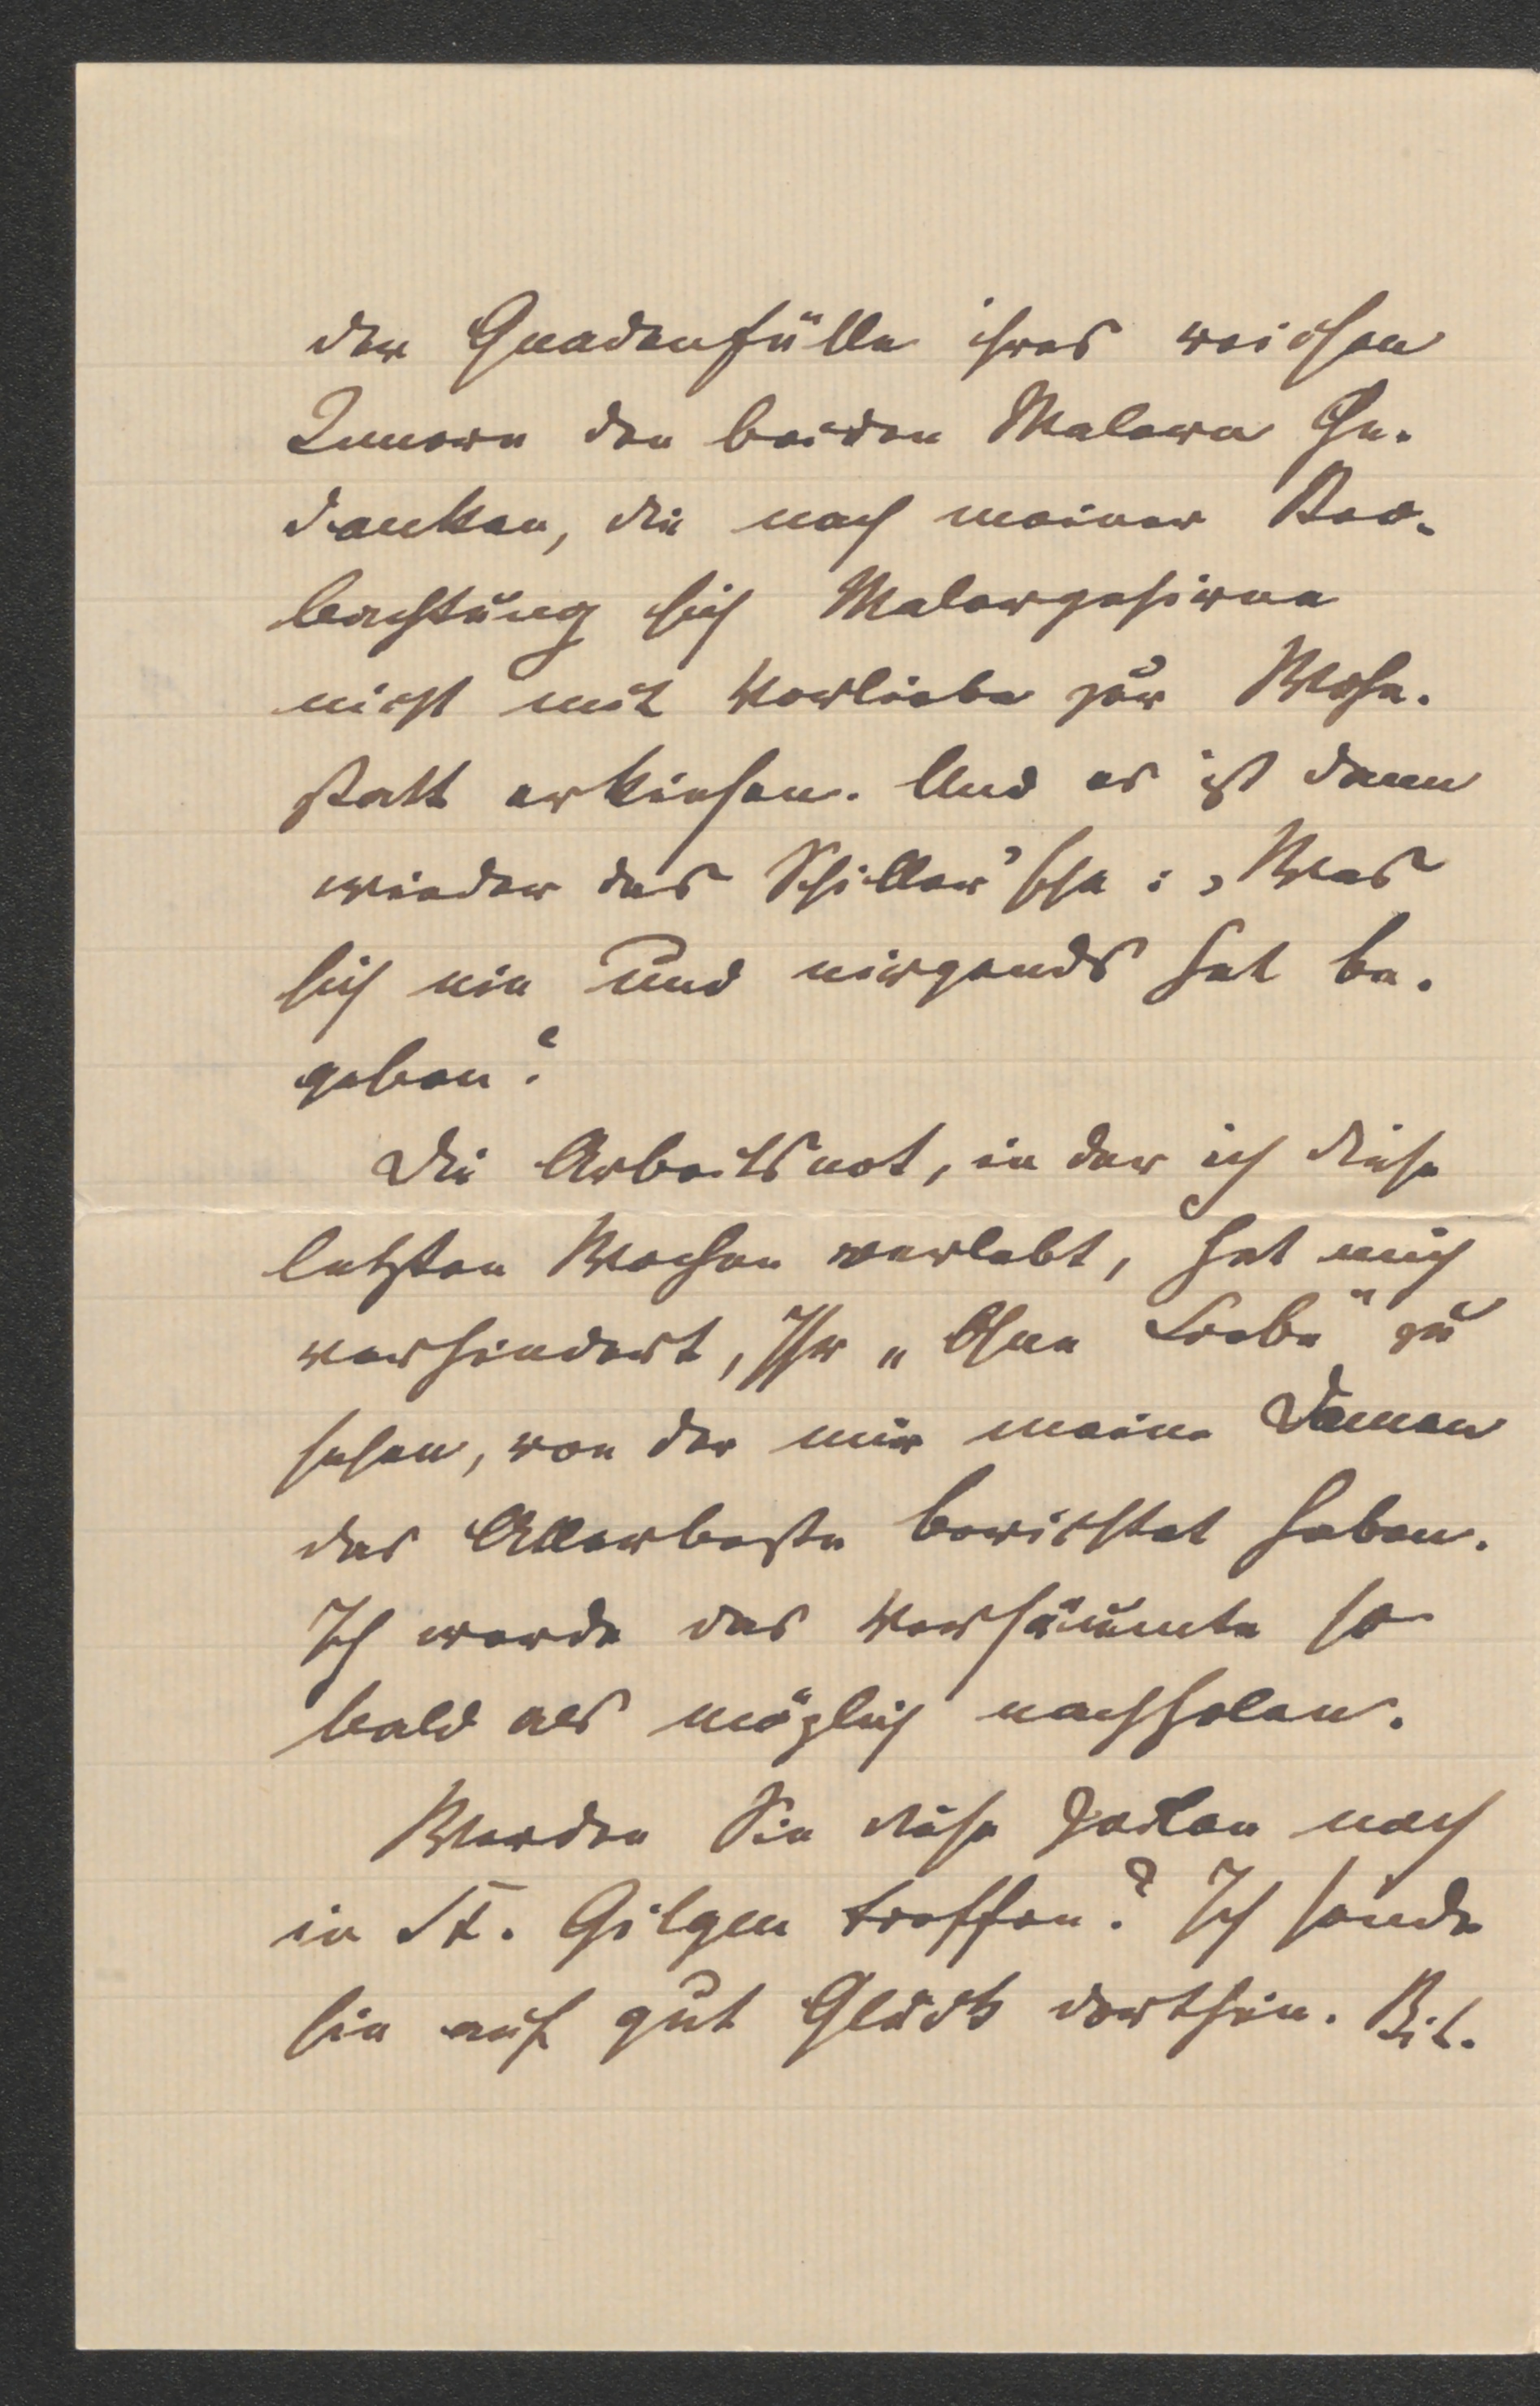 der Gnadenfülle ihres weichen
Innern den beiden Malern Ge-
danken, die nach meiner Beo-
bachtung sich Malergehirne
nicht mit Vorliebe zur Wohn-
statt erkiesen. Und es ist dann
wieder das Schiller'sche: „Was
sich nie und nirgends hat be-
geben“.
Die Arbeitsnot, in der ich diese
letzten Wochen verlebt, hat mich
verhindert, Ihr „Ohne Liebe“ zu
sehen, von der mir meine Damen
das Allerbeste berichtet haben.
Ich werde das Versäumte so
bald als möglich nachholen.
Werden Sie diese Zeilen noch
in St. Gilgen treffen? Ich sende
sie auf gut Glück dorthin. Bit-